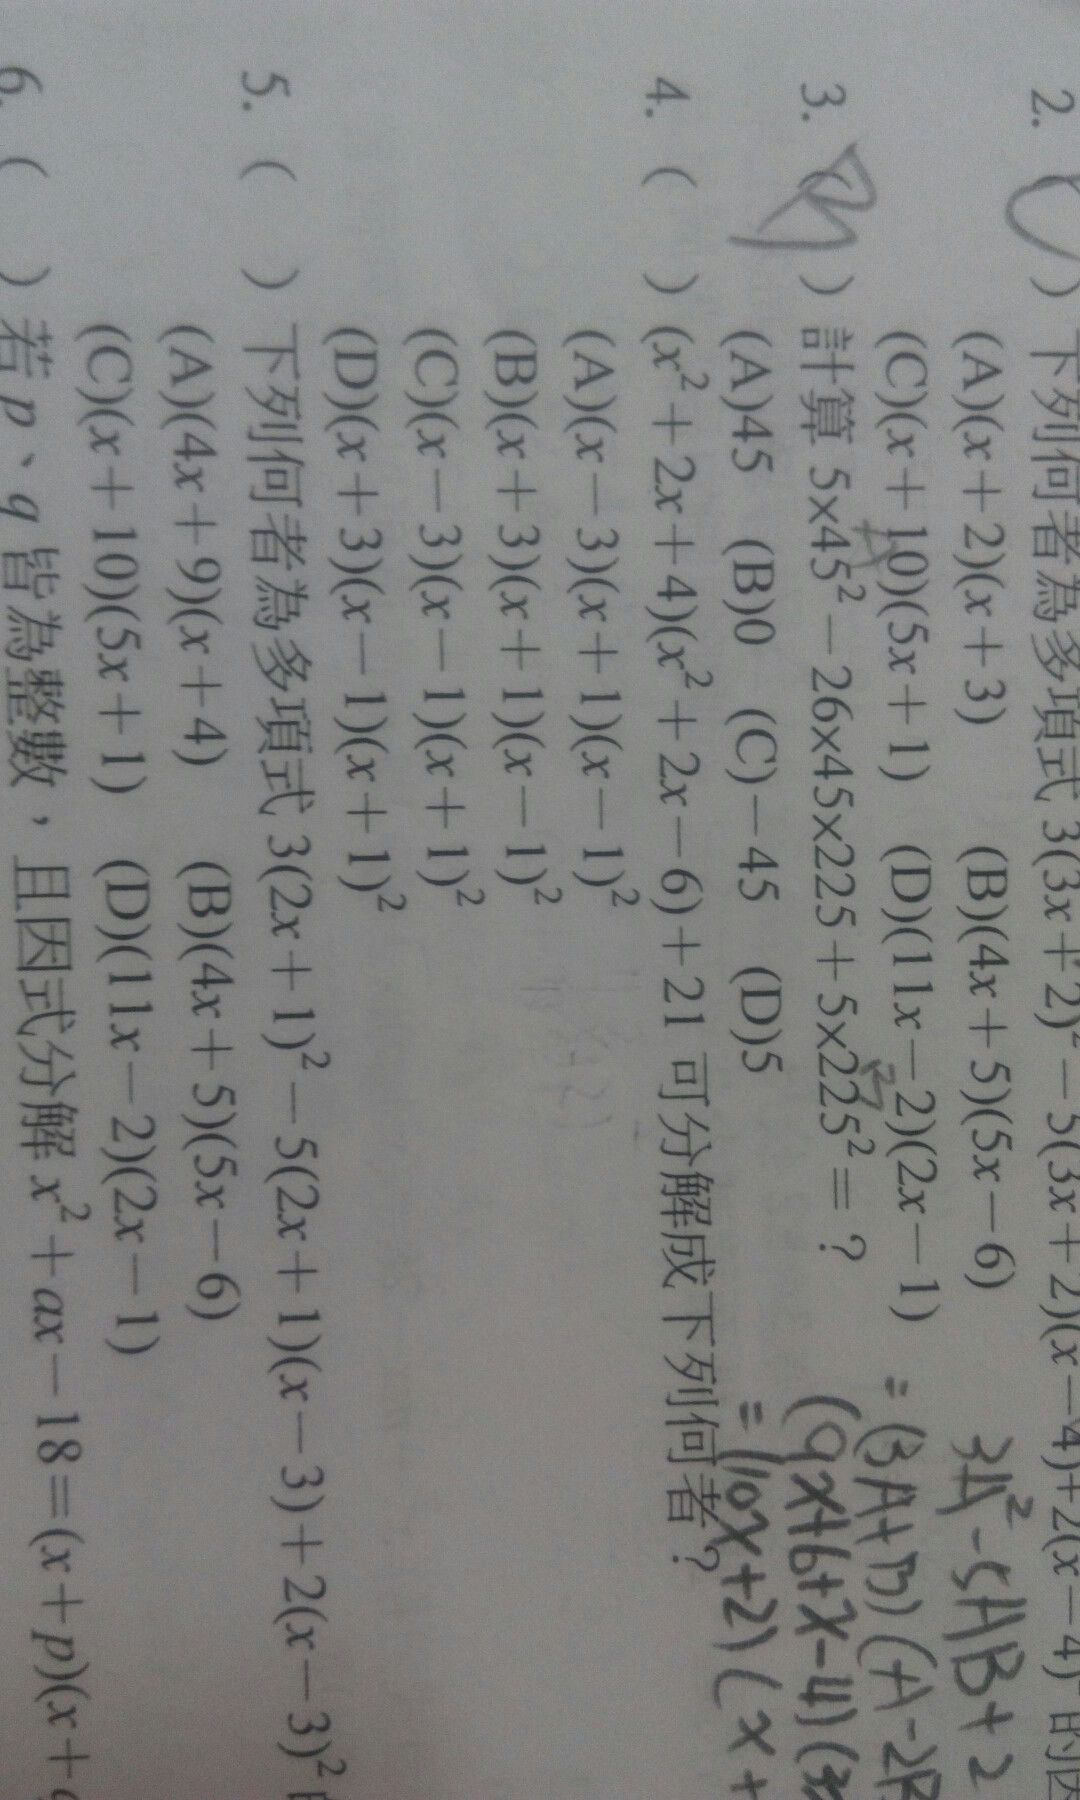 2. ( ) 下列何者為多項式 3(3x+2)²-5(3x+2)(x-4)+2(x-4)² 的因
(A)(x+2)(x+3) (B)(4x+5)(5x-6)
(C)(x+10)(5x+1) (D)(11x-2)(2x-1)
3A²-5AB+2
=(3A+B)(A-2B
(9x+6+x-4)(3x
=(10x+2)(x+
3. (B) 計算 5×45²-26×45×225+5×225²=?
(A)45 (B)0 (C)-45 (D)5
4. ( ) (x²+2x+4)(x²+2x-6)+21 可分解成下列何者?
(A)(x-3)(x+1)(x-1)²
(B)(x+3)(x+1)(x-1)²
(C)(x-3)(x-1)(x+1)²
(D)(x+3)(x-1)(x+1)²
5. ( ) 下列何者為多項式 3(2x+1)²-5(2x+1)(x-3)+2(x-3)²
(A)(4x+9)(x+4) (B)(4x+5)(5x-6)
(C)(x+10)(5x+1) (D)(11x-2)(2x-1)
6. ( ) 若 p、q 皆為整數,且因式分解 x²+ax-18=(x+p)(x+q